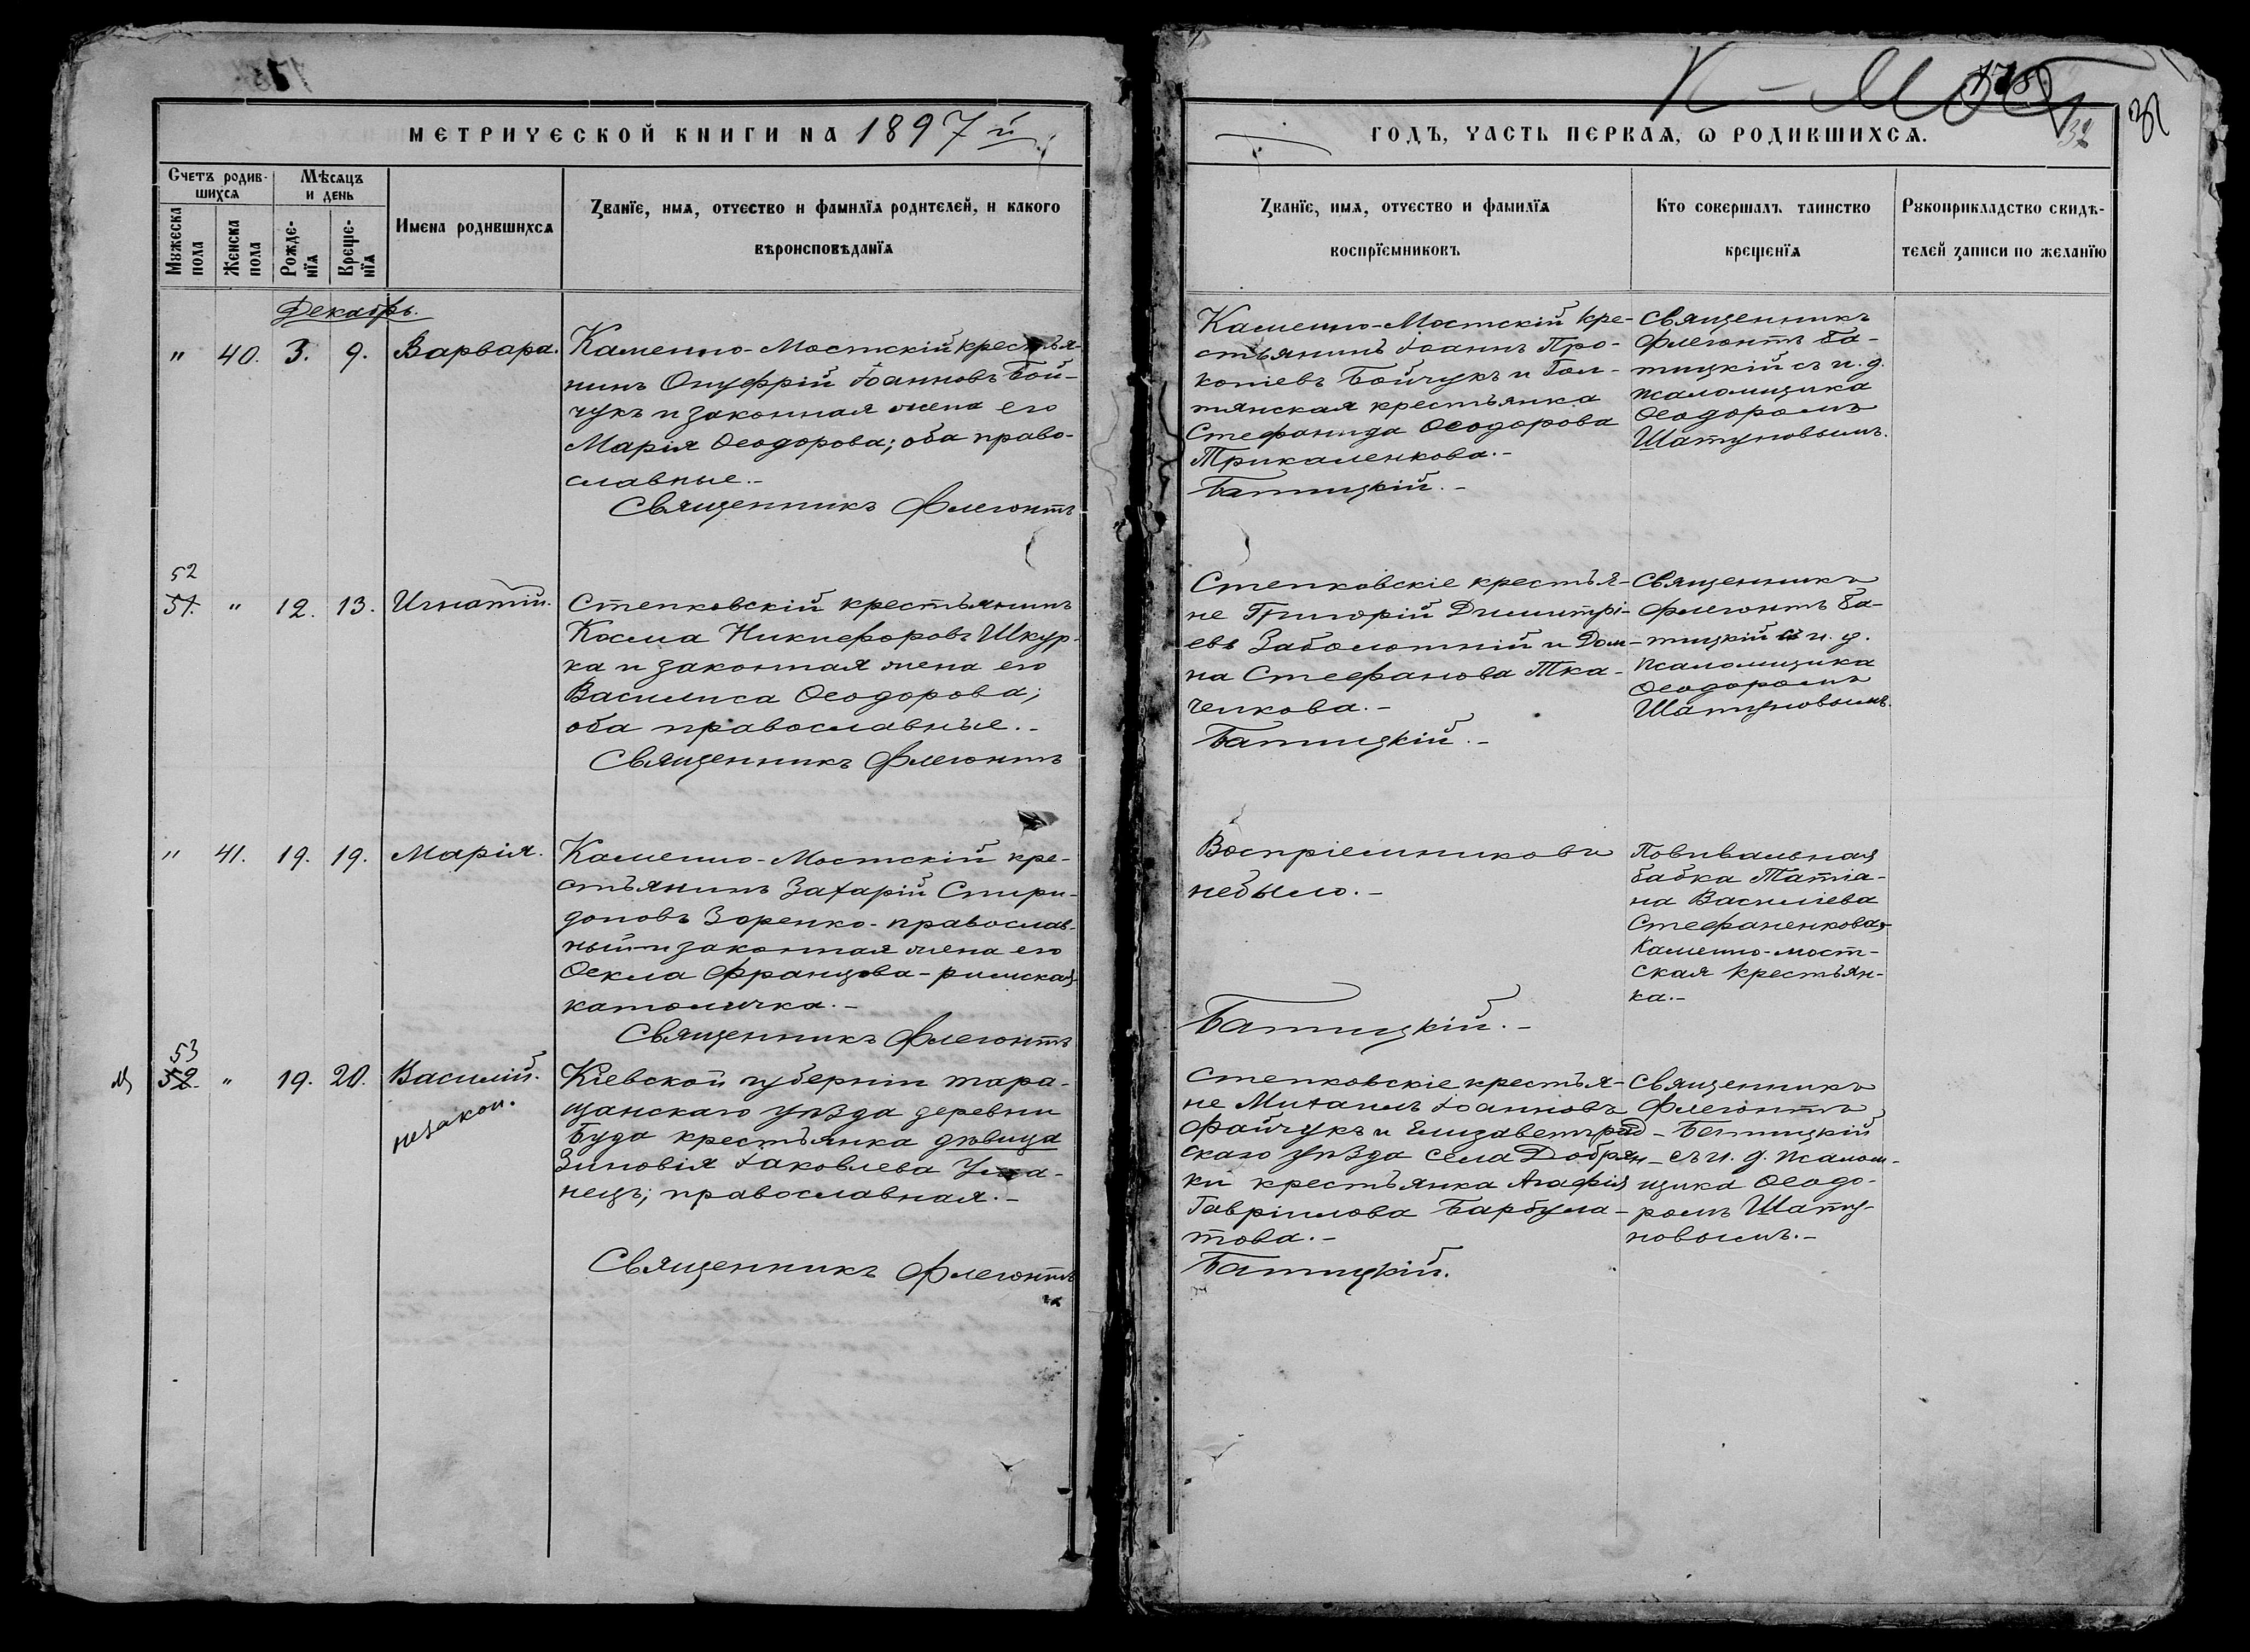 К-Мос
32
МЕТРИЧЕСКОЙ КНИГИ НА 1897 й
ГОДЪ, ЧАСТЬ ПЕРВАЯ, Ѡ РОДИВШИХСЯ.
Счетъ родив-
шихся
Мѣсяцъ
и день
Мужеска
пола
Женска
пола
Рожде-
нїя
Креще-
нїя
Имена родившихся
Званїе, имя, отчество и фамилїя родителей, и какого
вѣроисповѣданїя
Званїе, имя, отчество и фамилїя
воспрїемниковъ
Кто совершалъ таинство
крещенїя
Рукоприкладство свидѣ-
телей записи по желанїю
Декабрь.
" 40. 3. 9. Варвара.
Каменно-Мостскій крестья-
нинъ Онуфрій Іоанновъ Бой-
чукъ и законная жена его
Марія Ѳеодорова; оба право-
славные.-
Священникъ Флегонтъ
Каменно-Мостскій кре-
стьянинъ Іоаннъ Про-
копіевъ Бойчукъ и Гол-
тянская крестьянка
Стефанида Ѳеодорова
Трикаленкова.-
Батицкій.-
Священникъ
Флегонтъ Ба-
тицкій съ и. д.
псаломщика
Ѳеодоромъ
Шатуновымъ.
52
51. " 12. 13. Игнатій.
Степковскій крестьянинъ
Косма Никифоровъ Шкур-
ка и законная жена его
Василиса Ѳеодорова;
оба православные.-
Священникъ Флегонтъ
Степковскіе крестья-
не Григорій Димитрі-
евъ Заболотній и Дом-
на Стефанова Тка-
ченкова.-
Батицкій.-
Священникъ
Флегонтъ Ба-
тицкій съ и. д.
псаломщика
Ѳеодоромъ
Шатуновымъ.
" 41. 19. 19. Марія.
Каменно-Мостскій кре-
стьянинъ Захарій Спири-
доновъ Зоренко-православ-
ный и законная жена его
Ѳекла Францова-римская
католичка.-
Священникъ Флегонтъ
Воспріемниковъ
небыло.-
Батицкій.-
Повивальная
бабка Татіа-
на Василіева
Стефаненкова-
Каменно-мост-
ская крестьян-
ка.-
53
52. " 19. 20. Василій.
незакон.
Кіевской губерніи тара-
щанскаго уѣзда деревни
Буда крестьянка дѣвица
Зиновія Іаковлева
нецъ; православная.-
Священникъ Флегонтъ
Степковскіе крестья-
не Михаилъ Іоанновъ
Файчукъ и Елизаветград-
скаго уѣзда села Добрян-
ки крестьянка Агафія
Гавріилова Барбула-
това.-
Батицкій.
Священникъ
Флегонтъ
Батицкій
съ и. д. псалом-
щика Ѳеодо-
ромъ Шату-
новымъ.-